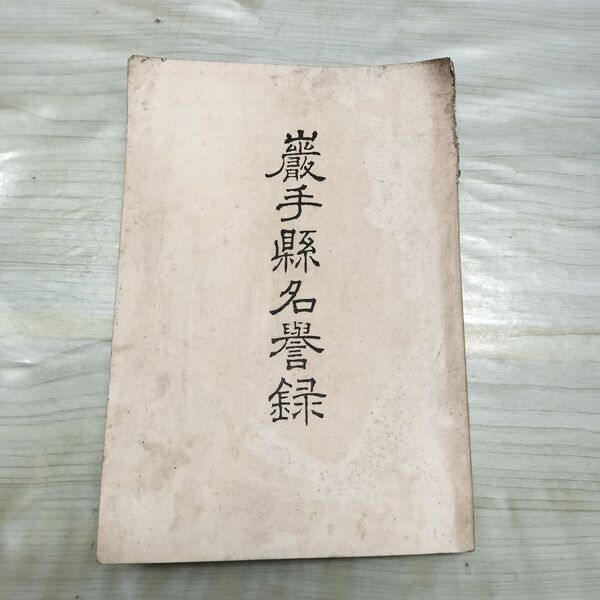 巖手縣名譽録